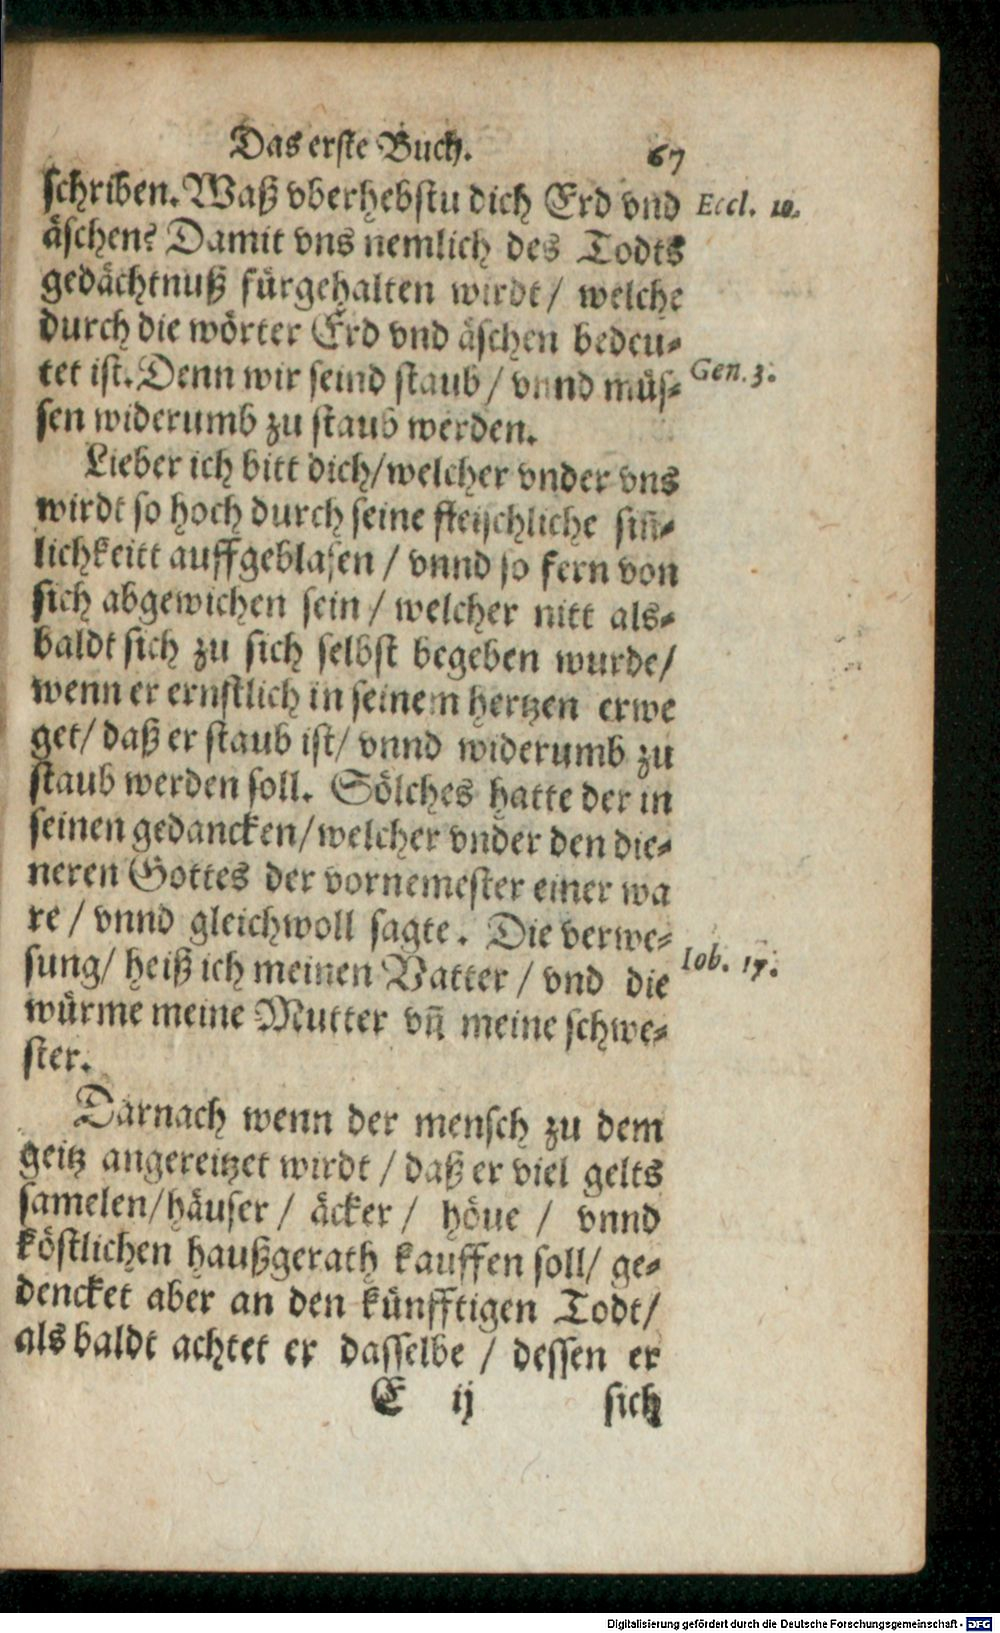 Das erste Buch. 67
schriben. Waß vberhebstu dich Erd vnd Eccl. 10.
äschen? Damit vns nemlich des Todts
gedächtnuß fürgehalten wirdt / welche
durch die wörter Erd vnd äschen bedeu⸗
tet ist. Denn wir seind staub / vnnd müs⸗ Gen. 3.
sen widerumb zu staub werden.
Lieber ich bitt dich / welcher vnder vns
wirdt so hoch durch seine fleischliche siñ⸗
lichkeitt auffgeblasen / vnnd so fern von
sich abgewichen sein / welcher nitt als⸗
baldt sich zu sich selbst begeben wurde /
wenn er ernstlich in seinem hertzen erwe
get / daß er staub ist / vnnd widerumb zu
staub werden soll. Sölches hatte der in
seinen gedancken / welcher vnder den die⸗
neren Gottes der vornemester einer wa
re / vnnd gleichwoll sagte. Die verwe⸗
sung / heiß ich meinen Vatter / vnd die Iob. 17.
würme meine Mutter vñ meine schwe⸗
ster.
Darnach wenn der mensch zu dem
geitz angereitzet wirdt / daß er viel gelts
samelen / häuser / äcker / höue / vnnd
köstlichen haußgerath kauffen soll / ge⸗
dencket aber an den künfftigen Todt /
als baldt achtet er dasselbe / dessen er
E ij sich
Digitalisierung gefördert durch die Deutsche Forschungsgemeinschaft - DFG